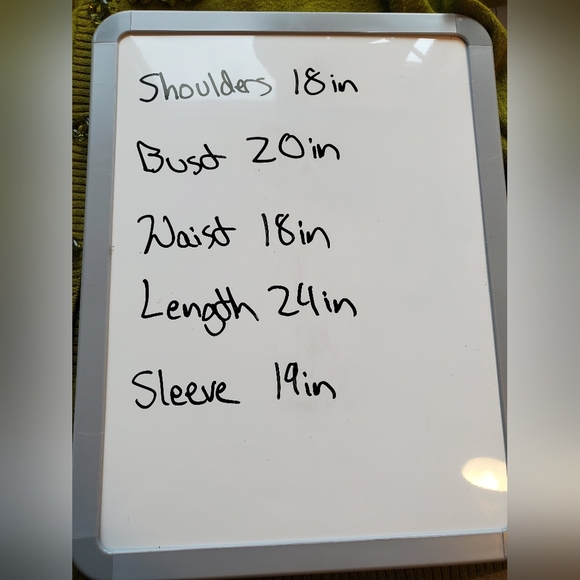 Shoulders 18in
Bust 20in
Waist 18in
Length 24in
Sleeve 19in